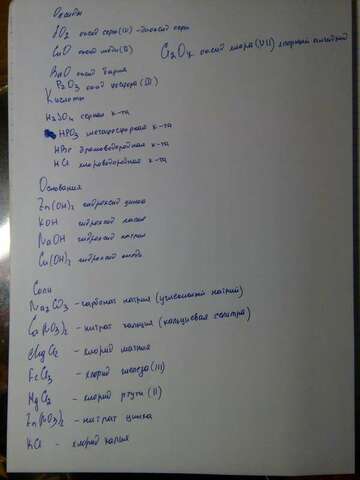 Оксиды
SO2 оксид серы(IV) - диоксид серы
CuO оксид меди(II)
Cl2O7 оксид хлора (VII) хлорный ангидрид
BaO оксид бария
P2O3 оксид фосфора (III)
Кислоты
H2SO4 серная к-та
HPO3 метафосфорная к-та
HBr бромоводородная к-та
HCl хлороводородная к-та
Основания
Zn(OH)2 гидроксид цинка
KOH гидроксид калия
NaOH гидроксид натрия
Cu(OH)2 гидроксид меди
Соли
Na2CO3 - карбонат натрия (углекислый натрий)
Ca(NO3)2 - нитрат кальция (кальциевая селитра)
MgCl2 - хлорид магния
FeCl3 - хлорид железа(III)
HgCl2 - хлорид ртути (II)
Zn(NO3)2 - нитрат цинка
KCl - хлорид калия